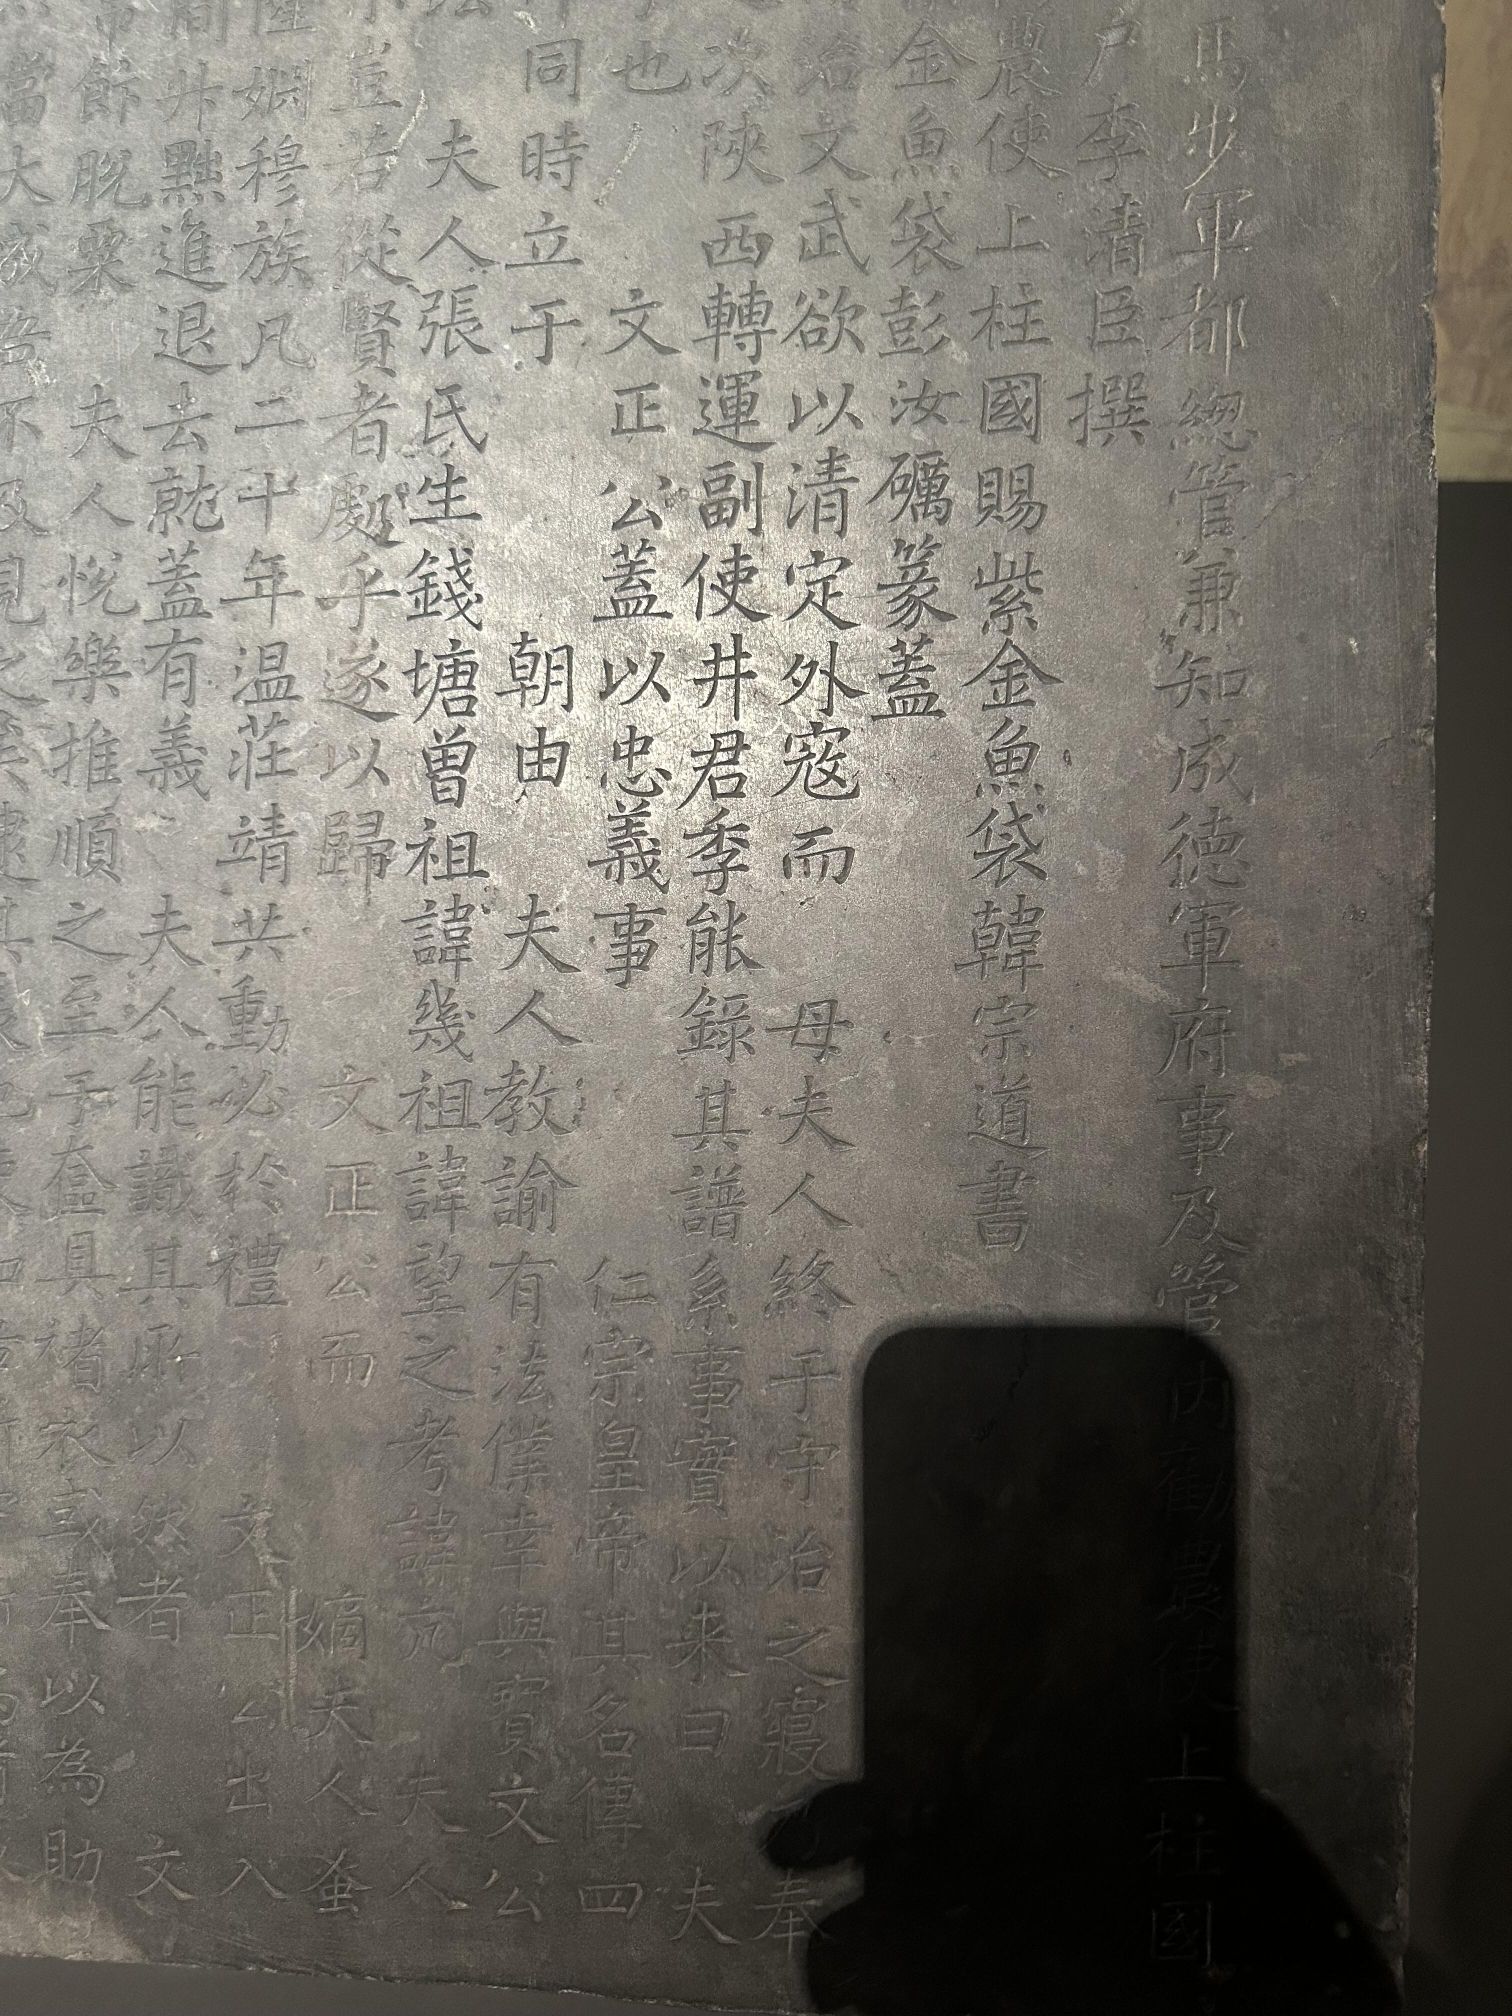 馬步軍都緫管兼知成德軍府事及管內勸農使上柱國
户李清臣撰
農使上柱國賜紫金魚袋韓宗道書
金魚袋彭汝礪篆蓋
治文武欲以清定外寇而 母夫人終于守治之寢 奉
次陝西轉運副使井君季能錄其譜系事實以来曰 夫
也 文正公蓋以忠義事 仁宗皇帝其名偉四
同時立于 朝由 夫人教諭有法俾幸與寳文公
夫人張氏生錢塘曽祖諱幾祖諱望之考諱亢 夫人
豈若從賢者處乎遂以歸 文正公而 嫡夫人蚤
婣穆族凡二十年温莊靖共動必於禮 文正公出入
升黜進退去就蓋有義 夫人能識其所以然者 文
飾脫粟 夫人悅樂推順之至予奩具褚衣或奉以為助
當大 吾不及見之矣逮其